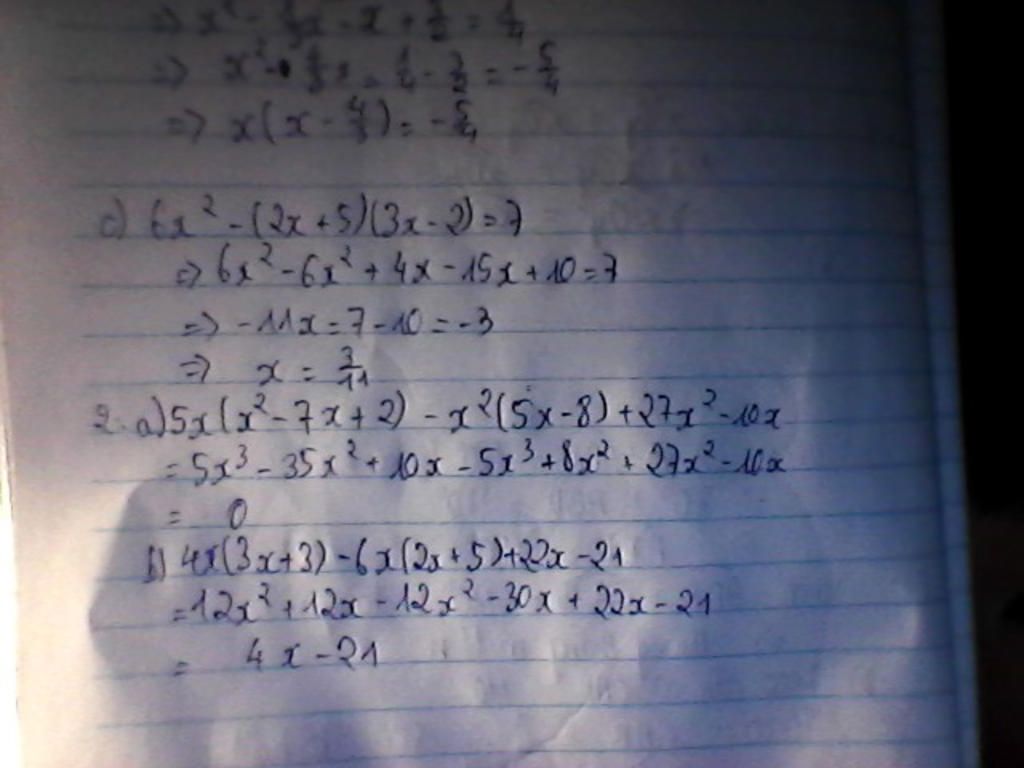 => x² - x
=> x² - x = 1/4 - 3/2 = -5/4
=> x(x - 4/3) = -5/4
c) 6x² - (2x + 5)(3x - 2) = 7
=> 6x² - 6x² + 4x - 15x + 10 = 7
=> -11x = 7 - 10 = -3
=> x = 3/11
2. a) 5x(x² - 7x + 2) - x²(5x - 8) + 27x² - 10x
= 5x³ - 35x² + 10x - 5x³ + 8x² + 27x² - 10x
= 0
b) 4x(3x + 3) - 6x(2x + 5) + 22x - 21
= 12x² + 12x - 12x² - 30x + 22x - 21
= 4x - 21